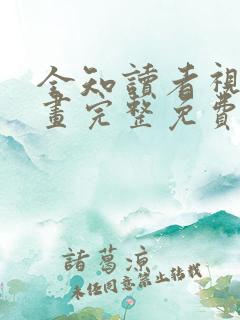 全知讀者視
畫完整免費
諸葛涼
未经同意禁止转载